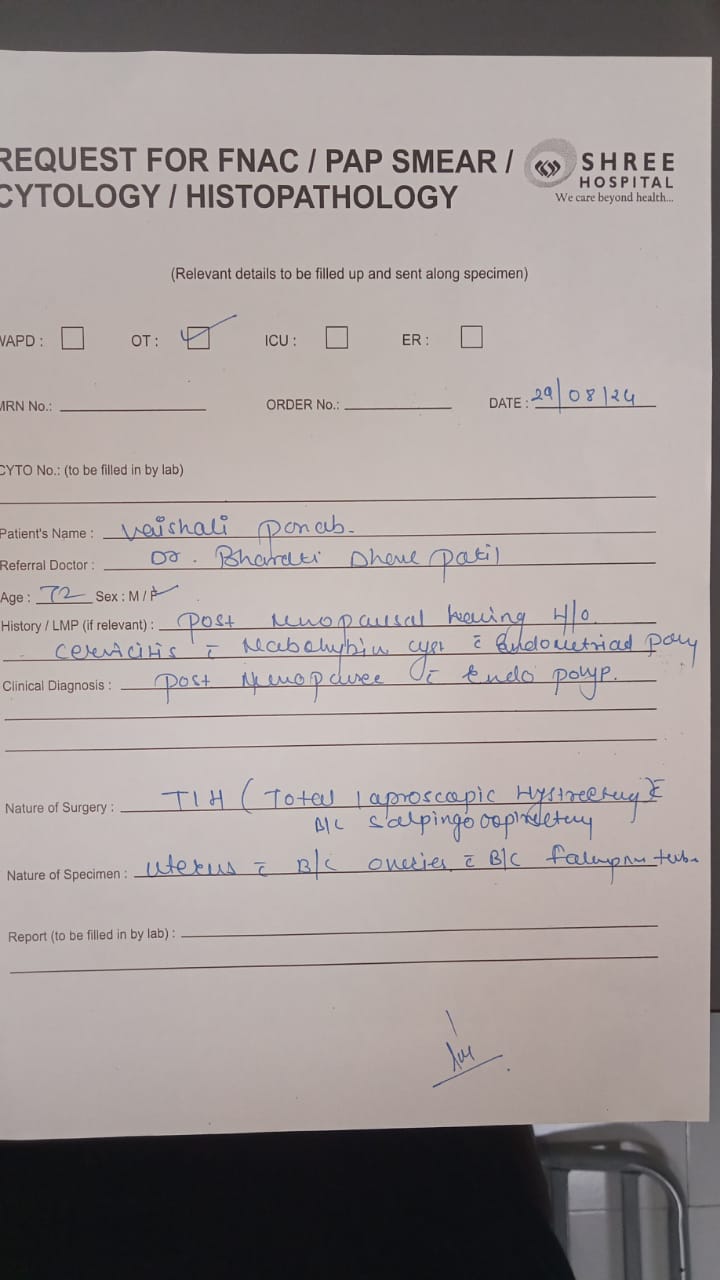 REQUEST FOR FNAC / PAP SMEAR /
CYTOLOGY / HISTOPATHOLOGY
SHREE
HOSPITAL
We care beyond health...
(Relevant details to be filled up and sent along specimen)
WAPD : OT : ICU : ER :
MRN No.: ORDER No.: DATE : 29/08/24
CYTO No.: (to be filled in by lab)
Patient's Name : Vaishali
Referral Doctor : Dr. Bharati Dhave patil
Age : 72 Sex : M / F
History / LMP (if relevant) : post menopausal having H/O
cervicitis c̄ cyst c̄ Endometriad poly
Clinical Diagnosis : post c̄ Endo polyp.
Nature of Surgery : TIH ( Total laproscopic c̄
B/L
Nature of Specimen : uterus c̄ B/L c̄ B/L
Report (to be filled in by lab) :